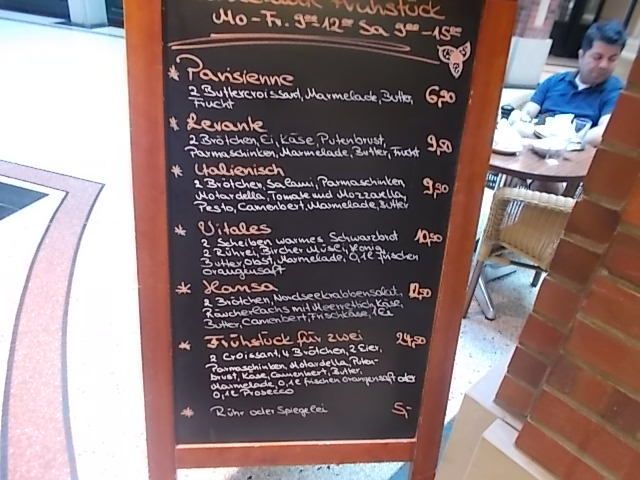 Frühstück
Mo-Fr. 9⁰⁰-12⁰⁰ Sa 9⁰⁰-15⁰⁰
* Parisienne
2 Buttercroissant, Marmelade, Butter, 6,90
Frucht
* Levante
2 Brötchen, Ei, Käse, Putenbrust, 9,50
Parmaschinken, Marmelade, Butter, Frucht
* Italienisch
2 Brötchen, Salami, Parmaschinken, 9,90
Motardella, Tomate und Mozzarella,
Pesto, Camenbert, Marmelade, Butter
* Vitales
2 Scheiben warmes Schwarzbrot 10,50
2 Rührei, Bircher Müsei, Honig,
Butter, Obst, Marmelade, 0,1l frischen
Orangensaft
* Hansa
2 Brötchen, Nordseekrabbensalat, 12,50
Räucherlachs mit Meerrettich, Käse,
Butter, Camenbert, Frischkäse, 1 Ei
* Frühstück für zwei 24,50
2 Croissant, 4 Brötchen, 2 Eier,
Parmaschinken, Motardella, Puten-
brust, Käse, Camenbert, Butter,
Marmelade, 0,1l frischen Orangensaft oder
0,1l Prosecco
* Rühr oder Spiegelei 5,-